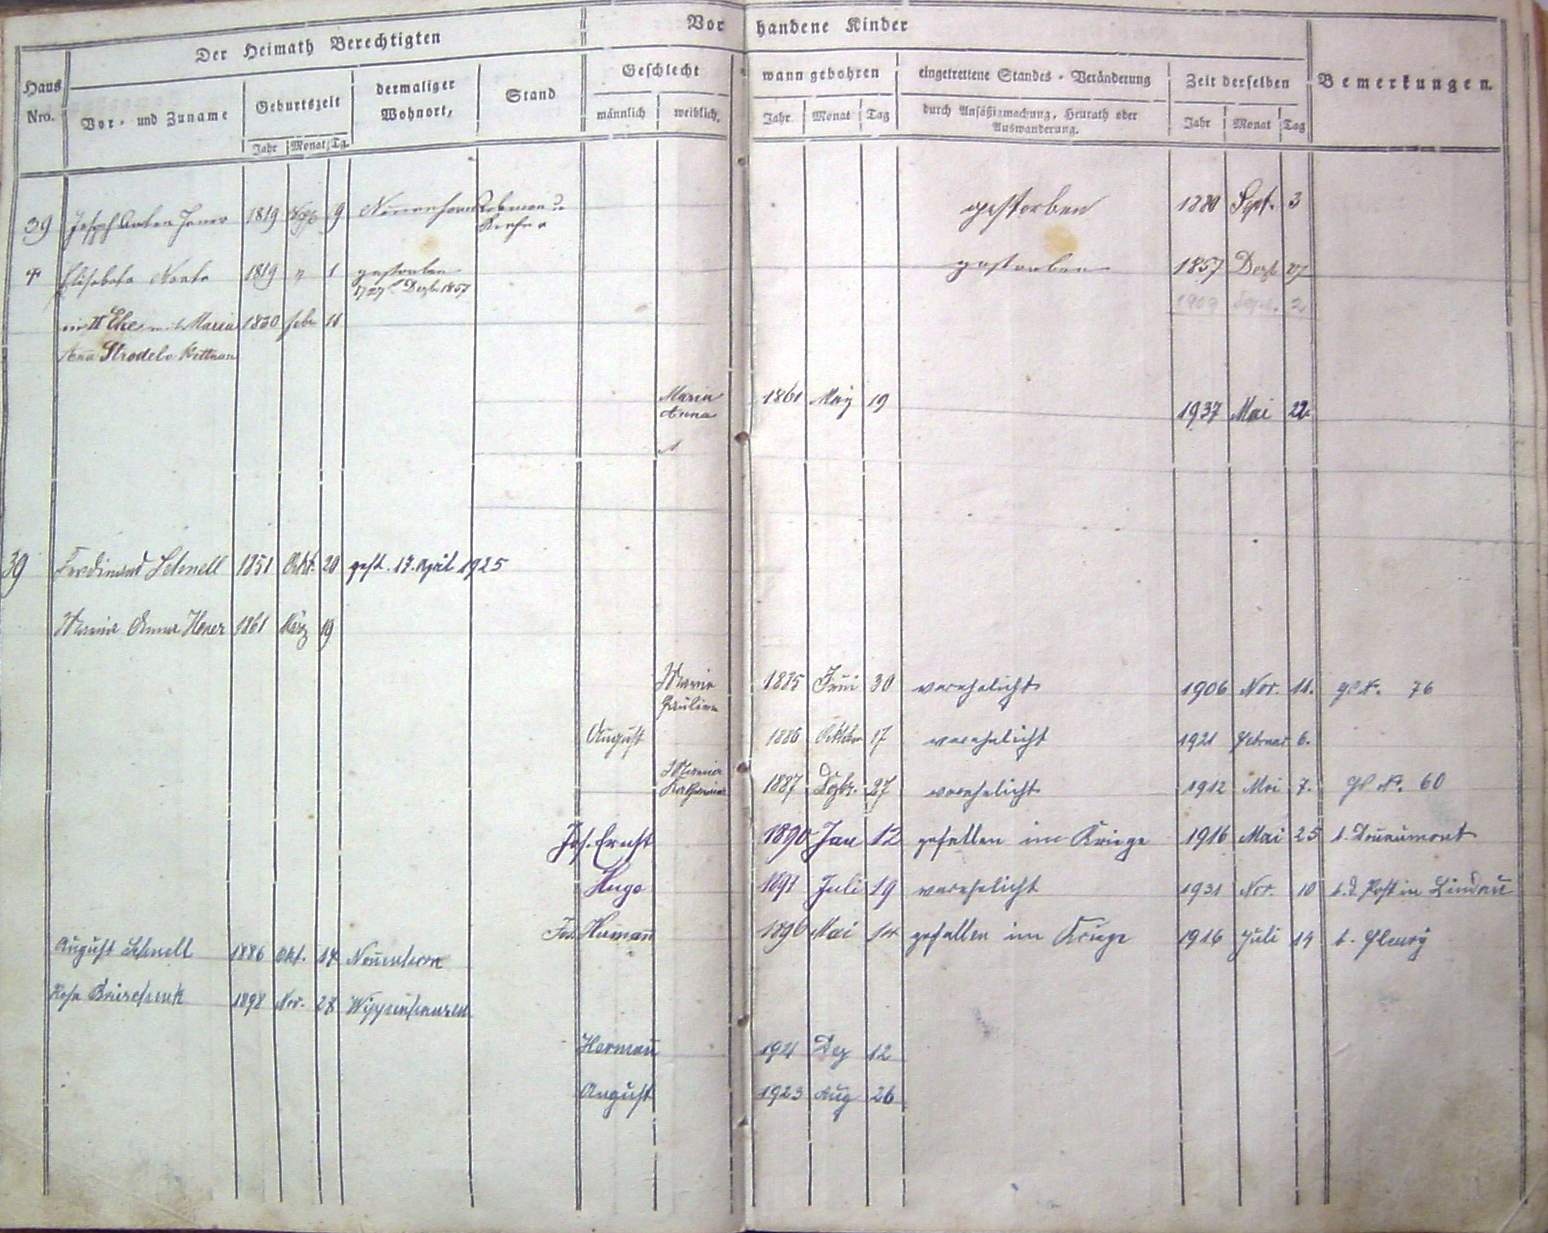 Der Heimath Berechtigten
Vorhandene Kinder
Haus Nro.
Vor- und Zuname
Geburtszeit
Jahr Monat Tg.
dermaliger Wohnort,
Stand
Geschlecht
männlich weiblich.
wann gebohren
Jahr Monat Tag
eingetrettene Standes-Veränderung
durch Ansäßigmachung, Heurath oder
Auswanderung.
Zeit derselben
Jahr Monat Tag
Bemerkungen.
39 Joseph Anton 1819 9 gestorben 1880 Sept. 3
Elisabeta 1819 " 1 gestorben gestorben 1857 Dezb 27
Dezb 1857
1909 Sept. 2
in II Ehe mit Maria 1830 Febr 16
Anna Strodel
Maria 1861 May 19 1937 Mai 22
Anna
1
39 Ferdinand Schnell 1851 Okt. 20 gest. 17. April 1925
Maria Anna 1861 19
Maria 1885 Juni 30 verehelicht 1906 Nov. 11. 76
Paulina
August 1886 Oktober 17 verehelicht 1921 Februar 6.
Maria 1887 Dezbr. 27 verehelicht 1912 Mai 7. 60
Katharina
Jos. Ernst 1890 Jan 12 gefallen im Kriege 1916 Mai 25 b. Douaumont
Hugo 1891 Juli 19 verehelicht 1931 Nov. 10 b. d. Post in Lindau
Herman 1896 Mai gefallen im Kriege 1916 Juli 14 b. Fleury
August Schnell 1886 Okt. 17
Rosa 1898 Nov. 28
Herman 1921 Dez 12
August 1923 Aug 26